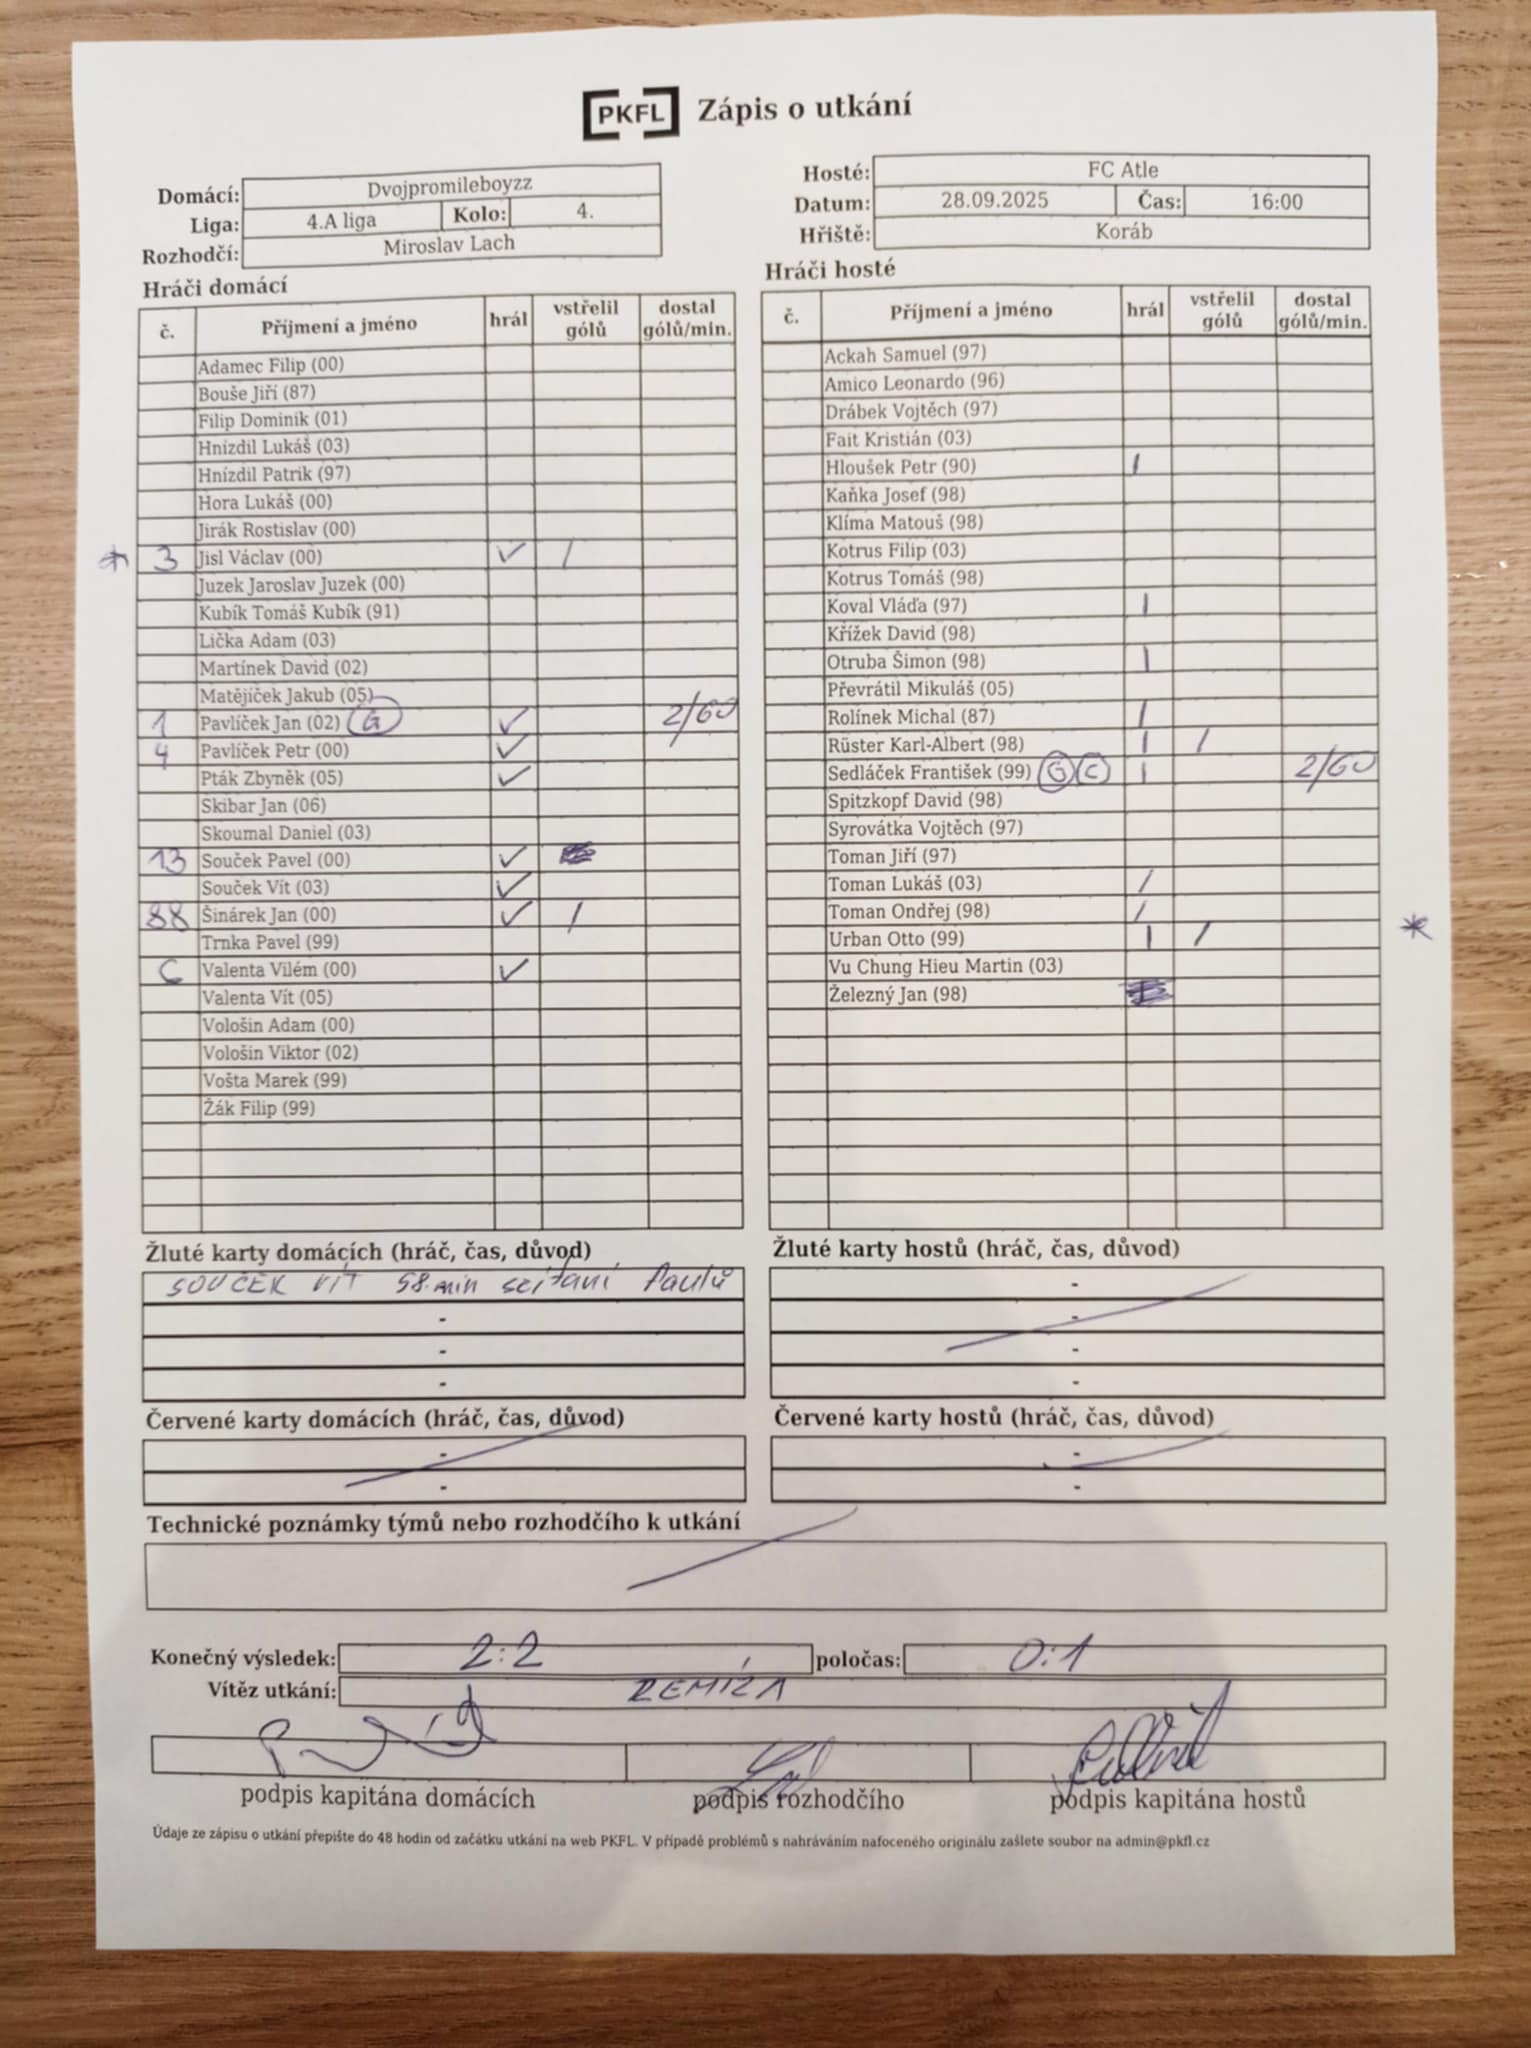 PKFL Zápis o utkání
Domácí: Dvojpromileboyzz
Liga: 4.A liga Kolo: 4.
Rozhodčí: Miroslav Lach
Hosté: FC Atle
Datum: 28.09.2025 Čas: 16:00
Hřiště: Koráb
Hráči domácí
č. Příjmení a jméno hrál vstřelil gólů dostal gólů/min.
Adamec Filip (00)
Bouše Jiří (87)
Filip Dominik (01)
Hnízdil Lukáš (03)
Hnízdil Patrik (97)
Hora Lukáš (00)
Jirák Rostislav (00)
* 3 Jisl Václav (00) ✓ /
Juzek Jaroslav Juzek (00)
Kubík Tomáš Kubík (91)
Lička Adam (03)
Martínek David (02)
Matějíček Jakub (05)
1 Pavlíček Jan (02) G ✓ 2/60
4 Pavlíček Petr (00) ✓
Pták Zbyněk (05) ✓
Skibar Jan (06)
Skoumal Daniel (03)
13 Souček Pavel (00) ✓
Souček Vít (03) ✓
88 Šinárek Jan (00) ✓ /
Trnka Pavel (99)
6 Valenta Vilém (00) ✓
Valenta Vít (05)
Vološin Adam (00)
Vološin Viktor (02)
Vošta Marek (99)
Žák Filip (99)
Hráči hosté
č. Příjmení a jméno hrál vstřelil gólů dostal gólů/min.
Ackah Samuel (97)
Amico Leonardo (96)
Drábek Vojtěch (97)
Fait Kristián (03)
Hloušek Petr (90) |
Kaňka Josef (98)
Klíma Matouš (98)
Kotrus Filip (03)
Kotrus Tomáš (98)
Koval Vláďa (97) |
Křížek David (98)
Otruba Šimon (98) |
Převrátil Mikuláš (05)
Rolínek Michal (87) /
Rüster Karl-Albert (98) | /
Sedláček František (99) G C | 2/60
Spitzkopf David (98)
Syrovátka Vojtěch (97)
Toman Jiří (97)
Toman Lukáš (03) /
Toman Ondřej (98) /
Urban Otto (99) | / *
Vu Chung Hieu Martin (03)
Železný Jan (98)
Žluté karty domácích (hráč, čas, důvod)
SOUČEK VÍT 58.min
-
-
-
Žluté karty hostů (hráč, čas, důvod)
-
-
-
-
Červené karty domácích (hráč, čas, důvod)
-
-
Červené karty hostů (hráč, čas, důvod)
-
-
Technické poznámky týmů nebo rozhodčího k utkání
Konečný výsledek: 2:2 poločas: 0:1
Vítěz utkání: REMÍZA
podpis kapitána domácích podpis rozhodčího podpis kapitána hostů
Údaje ze zápisu o utkání přepište do 48 hodin od začátku utkání na web PKFL. V případě problémů s nahráváním nafoceného originálu zašlete soubor na admin@pkfl.cz